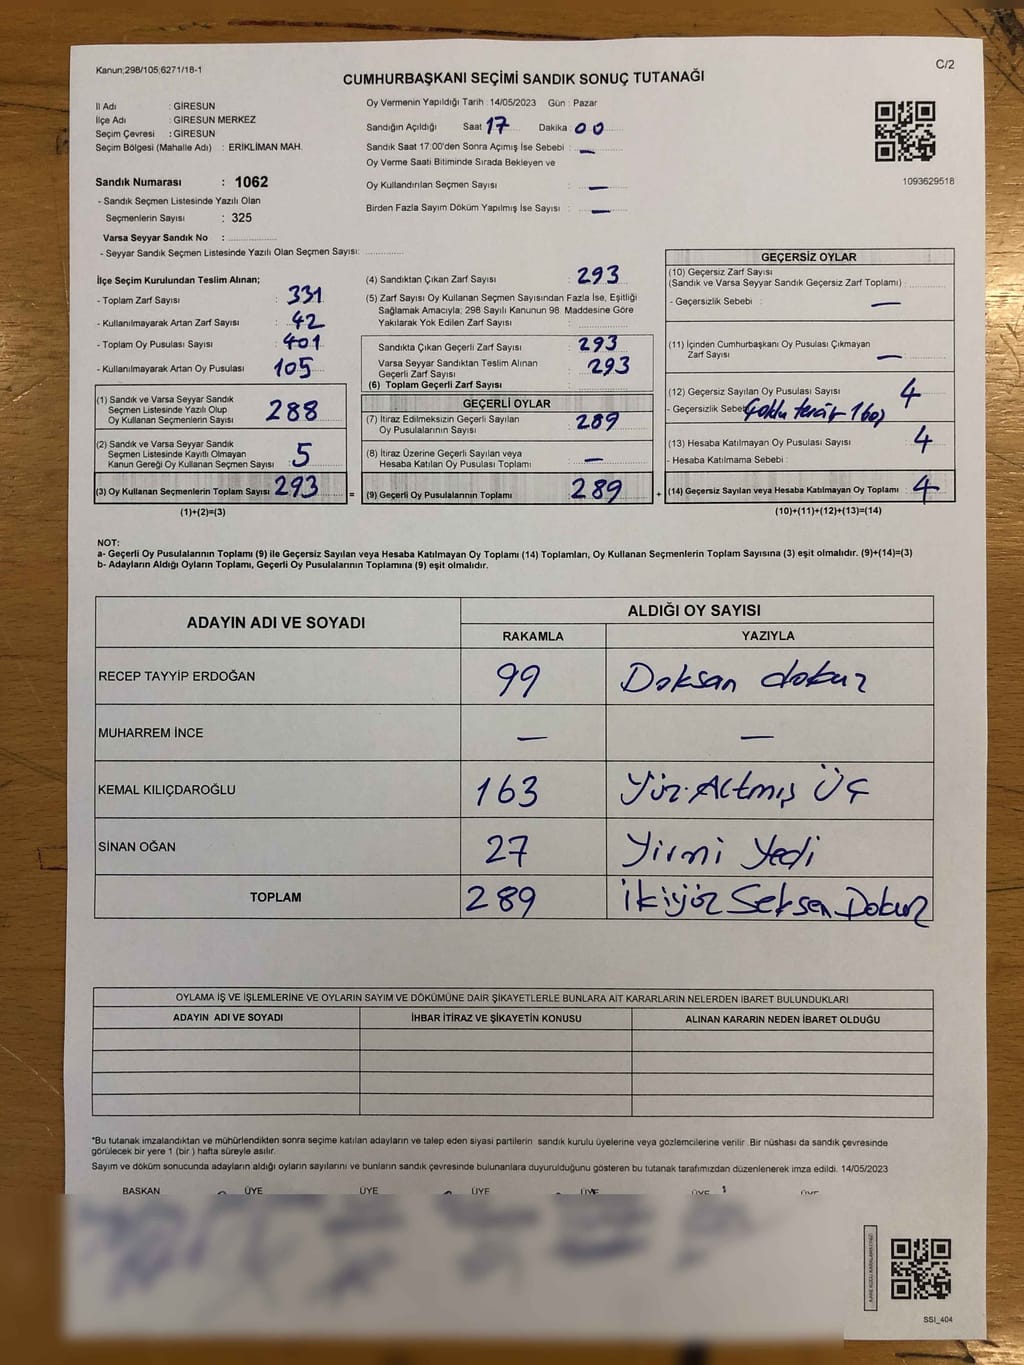 Kanun;298/105;6271/18-1
C/2
CUMHURBAŞKANI SEÇİMİ SANDIK SONUÇ TUTANAĞI
İl Adı : GİRESUN
İlçe Adı : GİRESUN MERKEZ
Seçim Çevresi : GİRESUN
Seçim Bölgesi (Mahalle Adı) : ERİKLİMAN MAH.
Sandık Numarası : 1062
- Sandık Seçmen Listesinde Yazılı Olan
Seçmenlerin Sayısı : 325
Varsa Seyyar Sandık No :
- Seyyar Sandık Seçmen Listesinde Yazılı Olan Seçmen Sayısı:
Oy Vermenin Yapıldığı Tarih : 14/05/2023 Gün : Pazar
Sandığın Açıldığı Saat 17 Dakika : 00
Sandık Saat 17:00'den Sonra Açımış İse Sebebi : —
Oy Verme Saati Bitiminde Sırada Bekleyen ve
Oy Kullandırılan Seçmen Sayısı : —
Birden Fazla Sayım Döküm Yapılmış İse Sayısı : —
1093629518
İlçe Seçim Kurulundan Teslim Alınan;
- Toplam Zarf Sayısı : 331
- Kullanılmayarak Artan Zarf Sayısı : 42
- Toplam Oy Pusulası Sayısı : 401
- Kullanılmayarak Artan Oy Pusulası : 105
(1) Sandık ve Varsa Seyyar Sandık
Seçmen Listesinde Yazılı Olup
Oy Kullanan Seçmenlerin Sayısı : 288
(2) Sandık ve Varsa Seyyar Sandık
Seçmen Listesinde Kayıtlı Olmayan
Kanun Gereği Oy Kullanan Seçmen Sayısı : 5
(3) Oy Kullanan Seçmenlerin Toplam Sayısı : 293
(1)+(2)=(3)
(4) Sandıktan Çıkan Zarf Sayısı : 293
(5) Zarf Sayısı Oy Kullanan Seçmen Sayısından Fazla İse, Eşitliği
Sağlamak Amacıyla; 298 Sayılı Kanunun 98 Maddesine Göre
Yakılarak Yok Edilen Zarf Sayısı :
Sandıkta Çıkan Geçerli Zarf Sayısı : 293
Varsa Seyyar Sandıktan Teslim Alınan
Geçerli Zarf Sayısı : 293
(6) Toplam Geçerli Zarf Sayısı :
GEÇERLİ OYLAR
(7) İtiraz Edilmeksizin Geçerli Sayılan
Oy Pusulalarının Sayısı : 289
(8) İtiraz Üzerine Geçerli Sayılan veya
Hesaba Katılan Oy Pusulası Toplamı : —
= (9) Geçerli Oy Pusulalarının Toplamı : 289
GEÇERSİZ OYLAR
(10) Geçersiz Zarf Sayısı
(Sandık ve Varsa Seyyar Sandık Geçersiz Zarf Toplamı) :
- Geçersizlik Sebebi : —
(11) İçinden Cumhurbaşkanı Oy Pusulası Çıkmayan
Zarf Sayısı : —
(12) Geçersiz Sayılan Oy Pusulası Sayısı : 4
- Geçersizlik Sebebi
(13) Hesaba Katılmayan Oy Pusulası Sayısı : 4
- Hesaba Katılmama Sebebi :
+ (14) Geçersiz Sayılan veya Hesaba Katılmayan Oy Toplamı : 4
(10)+(11)+(12)+(13)=(14)
NOT:
a- Geçerli Oy Pusulalarının Toplamı (9) ile Geçersiz Sayılan veya Hesaba Katılmayan Oy Toplamı (14) Toplamları, Oy Kullanan Seçmenlerin Toplam Sayısına (3) eşit olmalıdır. (9)+(14)=(3)
b- Adayların Aldığı Oyların Toplamı, Geçerli Oy Pusulalarının Toplamına (9) eşit olmalıdır.
ADAYIN ADI VE SOYADI
ALDIĞI OY SAYISI
RAKAMLA YAZIYLA
RECEP TAYYİP ERDOĞAN 99 Doksan dokuz
MUHARREM İNCE — —
KEMAL KILIÇDAROĞLU 163 Yüz Altmış Üç
SİNAN OĞAN 27 Yirmi Yedi
TOPLAM 289 İkiyüz Seksen Dokuz
OYLAMA İŞ VE İŞLEMLERİNE VE OYLARIN SAYIM VE DÖKÜMÜNE DAİR ŞİKAYETLERLE BUNLARA AİT KARARLARIN NELERDEN İBARET BULUNDUKLARI
ADAYIN ADI VE SOYADI İHBAR İTİRAZ VE ŞİKAYETİN KONUSU ALINAN KARARIN NEDEN İBARET OLDUĞU
*Bu tutanak imzalandıktan ve mühürlendikten sonra seçime katılan adayların ve talep eden siyasi partilerin sandık kurulu üyelerine veya gözlemcilerine verilir .Bir nüshası da sandık çevresinde
görülecek bir yere 1 (bir ) hafta süreyle asılır.
Sayım ve döküm sonucunda adayların aldığı oyların sayılarını ve bunların sandık çevresinde bulunanlara duyurulduğunu gösteren bu tutanak tarafımızdan düzenlenerek imza edildi. 14/05/2023
BAŞKAN ÜYE ÜYE ÜYE ÜYE ÜYE ÜYE
SSI_404